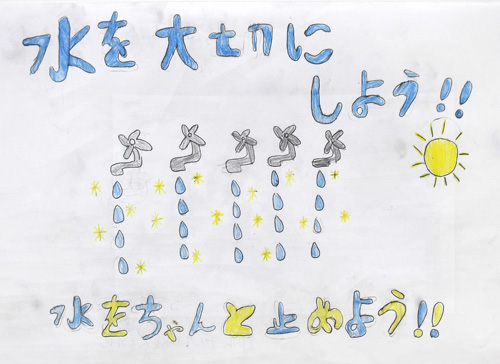 水を大切に
しよう!!
水をちゃんと止めよう!!